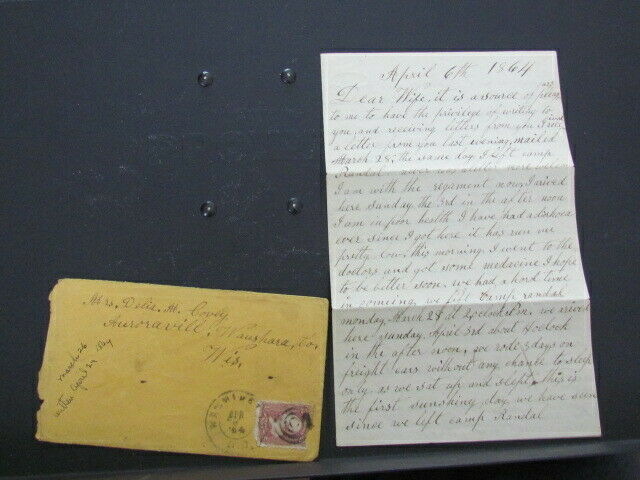 April 6th 1864
Dear Wife, it is a source of
to me to have the privilege of writing to
you, and receiving letters from you I
a letter from you last evening, mailed
March 28, the same day I left camp
Randal
I am with the regament now, I rived
here Sunday the 3rd in the after noon
I am in poor health I have had a
ever since I got here, it has run me
pretty low, this morning I went to the
doctors and got some medacine I hope
to be better soon, we had a hard time
in coming, we left camp randal
monday March 28 at 2 oclock P.m, we rived
here sunday April 3rd about oclock
in the after noon, we rode days on
freight cars without any chance to sleep
only as we sat up and slept, this is
the first sunshiny day we have seen
since we left camp Randal
Mrs, Delis, M, Covey
Auroravill, Waushara, Co,
Wis,
march 26
april 29